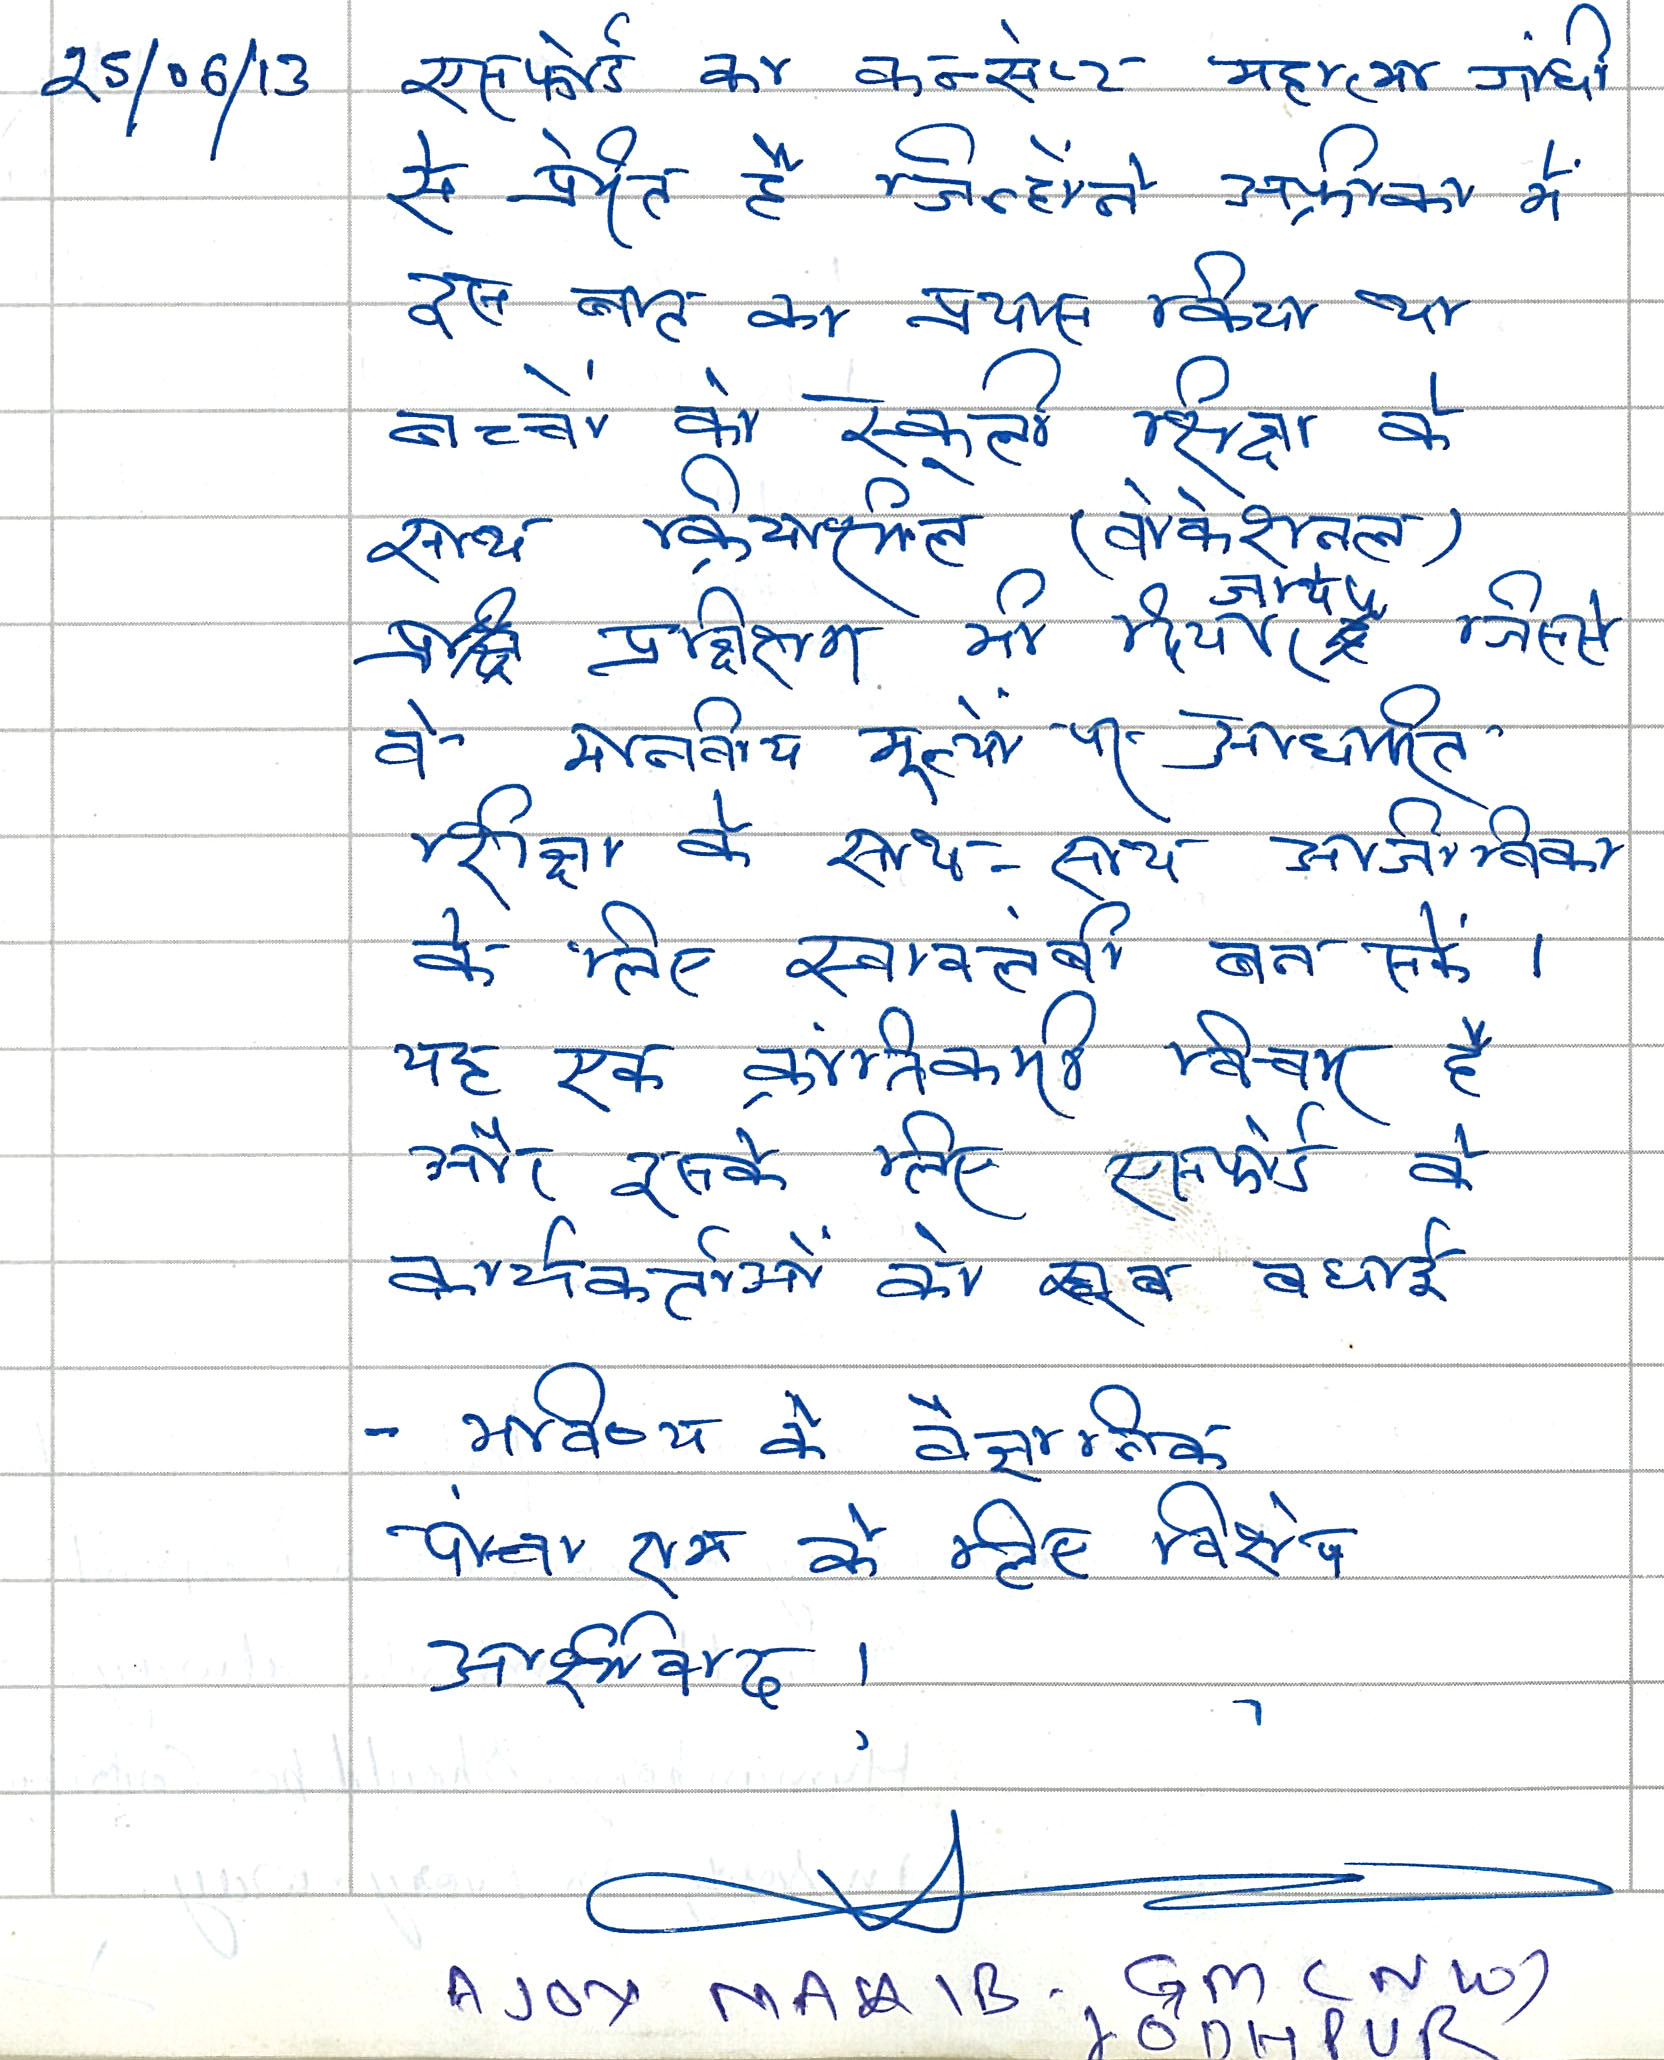 25/06/13 एसफोर्ड का कन्सेप्ट महात्मा गांधी
से प्रेरित है जिन्होंने अफ्रीका में
इस बात का प्रयास किया था
बच्चों को स्कूली शिक्षा के
साथ क्रियाशील (वोकेशनल)
प्रशिक्षण भी दिया जाये जिससे
वे मानवीय मूल्यों पर आधारित
शिक्षा के साथ-साथ आजीविका
के लिए स्वावलंबी बन सकें ।
यह एक क्रांतिकारी विचार है
और इसके लिए एसफोर्ड के
कार्यकर्ताओं को खूब बधाई
- भविष्य के वैज्ञानिक
पांचा राम के लिए विशेष
आशीर्वाद ।
AJOY GM (NW)
JODHPUR